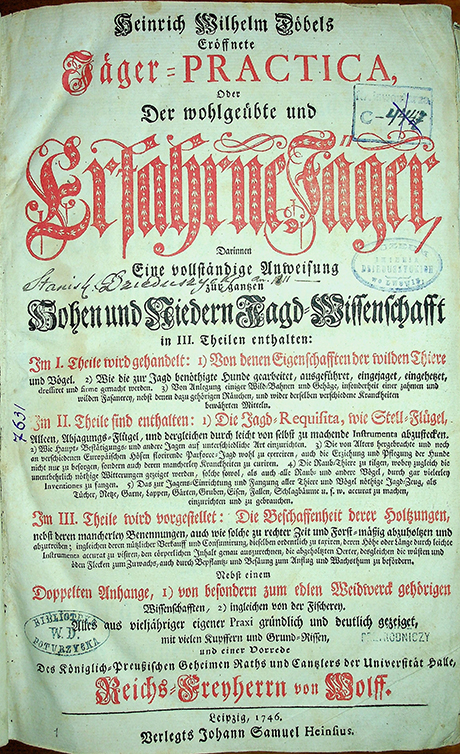 Heinrich Wilhelm Döbels
Eröffnete
Jäger-PRACTICA,
Oder
Der wohlgeübte und
Erfahrne Jäger,
Darinnen
Eine vollständige Anweisung
zur gantzen
Hohen und Niedern Jagd-Wissenschafft
in III. Theilen enthalten:
Im I. Theile wird gehandelt: 1) Von denen Eigenschafften der wilden Thiere
und Vögel. 2) Wie die zur Jagd benöthigte Hunde gearbeitet, ausgeführet, eingejaget, eingehetzet,
dressiret und firme gemacht werden. 3) Von Anlegung einiger Wild-Bahnen und Gehäge, insonderheit einer zahmen und
wilden Fasanerey, nebst denen dazu gehörigen Räuchen, und wider derselben verschiedene Kranckheiten
bewährten Mitteln.
Im II. Theile sind enthalten: 1) Die Jagd-Requisita, wie Stell-Flügel,
Alleen, Abjagungs-Flügel, und dergleichen durch leicht von selbst zu machende Instrumenta abzustecken.
2) Wie Haupt- Bestätigungs- und andere Jagen auf unterschiedliche Art einzurichten. 3) Die von Alters hergebrachte und noch
an verschiedenen Europäischen Höfen florirende Parforce-Jagd wohl zu exerciren, auch die Erziehung und Pflegung der Hunde
nicht nur zu besorgen, sondern auch deren mancherley Kranckheiten zu curiren. 4) Die Raub-Thiere zu tilgen, wobey zugleich die
unentbehrlich nöthige Witterungen gezeiget werden, solche sowol, als auch alle Raub- und andere Vögel, durch gar vielerley
Inventiones zu fangen. 5) Das zur Jagens-Einrichtung und Fangung aller Thiere und Vögel nöthige Jagd-Zeug, als
Tücher, Netze, Garne, Lappen, Gärten, Gruben, Eisen, Fallen, Schlagbäume u. s. w. accurat zu machen,
einzurichten und zu gebrauchen.
Im III. Theile wird vorgestellet: Die Beschaffenheit derer Holtzungen,
nebst deren mancherley Benennungen, auch wie solche zu rechter Zeit und Forst-mäßig abzuholtzen und
abzutreiben; ingleichen deren nützlicher Verkauff und Consumirung, dieselben ordentlich zu taxiren, deren Höhe oder Länge durch leichte
Instrumenta accurat zu visiren, den cörperlichen Inhalt genau auszurechnen, die abgeholtzten Oerter, desgleichen die wüsten und
öden Flecken zum Zuwachs, auch durch Bepflantz- und Besäung zum Anflug und Wachsthum zu befördern.
Nebst einem
Doppelten Anhange, 1) von besondern zum edlen Weidwerck gehörigen
Wissenschafften, 2) ingleichen von der Fischerey.
Alles aus vieljähriger eigener Praxi gründlich und deutlich gezeiget,
mit vielen Kupffern und Grund-Rissen,
und einer Vorrede
Des Königlich-Preußischen Geheimen Raths und Cantzlers der Universität Halle,
Reichs-Freyherrn von Wolff.
Leipzig, 1746.
Verlegts Johann Samuel Heinsius.
7631
BIBLIOTEKA
W. D.
POTURZYSKA